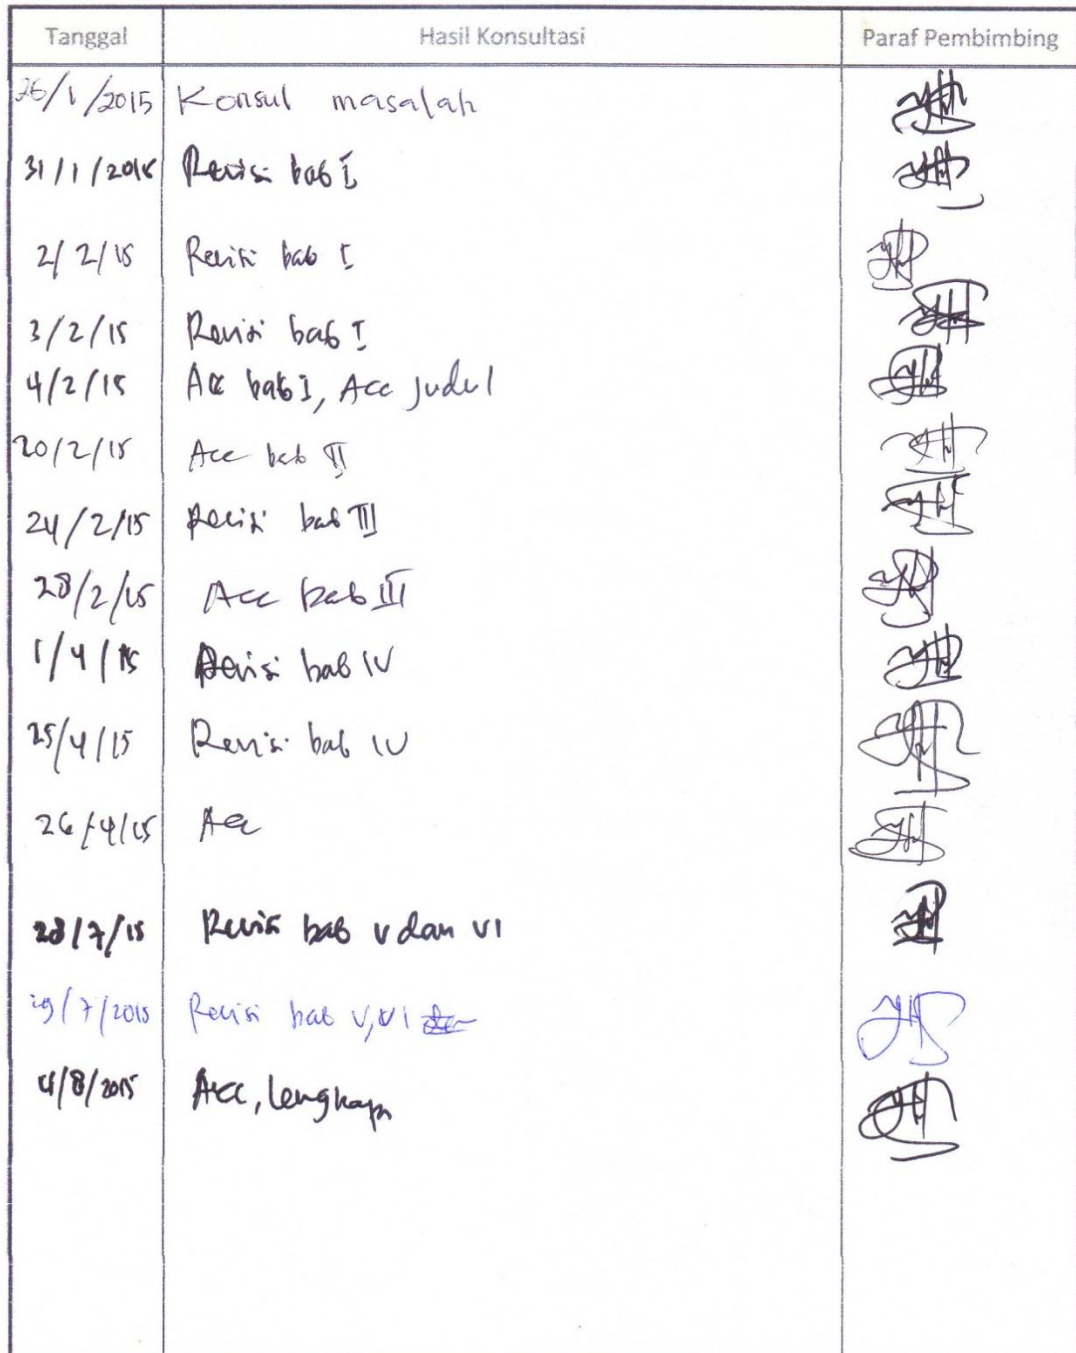 Tanggal Hasil Konsultasi Paraf Pembimbing
26/1/2015 Konsul masalah
31/1/2015 Revisi bab I
2/2/15 Revisi bab I
3/2/15 Revisi bab I
4/2/15 Acc bab I, Acc judul
20/2/15 Acc bab II
24/2/15 Revisi bab III
28/2/15 Acc bab III
1/4/15 Revisi bab IV
25/4/15 Revisi bab IV
26/4/15 Acc
28/7/15 Revisi bab V dan VI
29/7/2015 Revisi bab V, VI
4/8/2015 Acc, lengkap